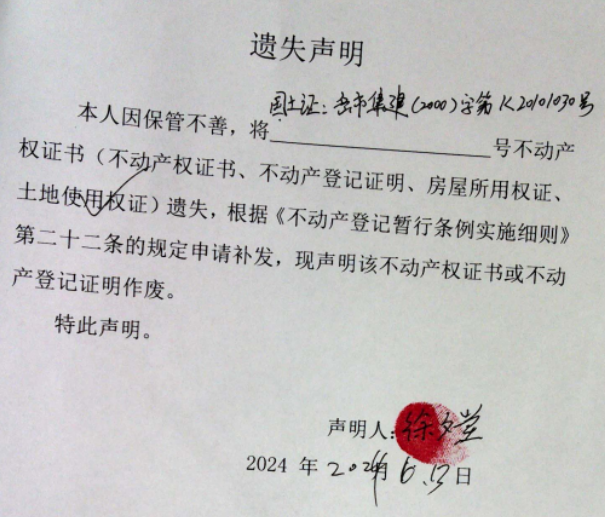 遗失声明
国土证：岳市集建(2000)字第K20101030号
本人因保管不善，将号不动产
权证书（不动产权证书、不动产登记证明、房屋所用权证、
土地使用权证）遗失，根据《不动产登记暂行条例实施细则》
第二十二条的规定申请补发，现声明该不动产权证书或不动
产登记证明作废。
特此声明。
声明人：徐夕堂
2024 年 2024月 6.13日